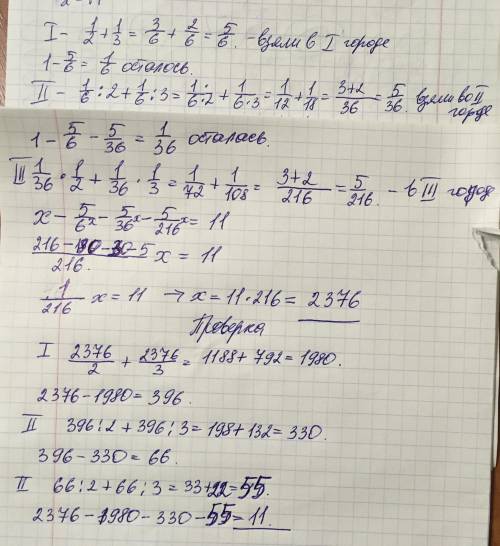 I - 1/2 + 1/3 = 3/6 + 2/6 = 5/6. - взяли в I городе
1 - 5/6 = 1/6 осталось.
II - 1/6 : 2 + 1/6 : 3 = 1/6·2 + 1/6·3 = 1/12 + 1/18 = 3+2/36 = 5/36. взяли во II
городе
1 - 5/6 - 5/36 = 1/36 осталось.
III 1/36 · 1/2 + 1/36 · 1/3 = 1/72 + 1/108 = 3+2/216 = 5/216. - в III городе
x - 5/6 x - 5/36 x - 5/216 x = 11
216-180-30-5/216. x = 11
1/216 x = 11 → x = 11·216 = 2376
Проверка
I 2376/2 + 2376/3 = 1188 + 792 = 1980.
2376 - 1980 = 396.
II 396:2 + 396:3 = 198 + 132 = 330.
396 - 330 = 66.
II 66:2 + 66:3 = 33 + 22 = 55.
2376 - 1980 - 330 - 55 = 11.